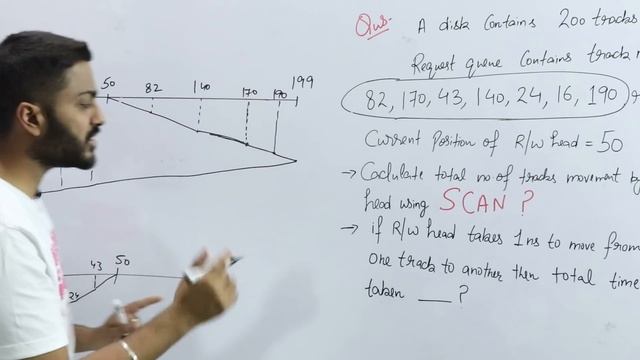 Que. A disk contains 200 tracks
Request queue contains track
82, 170, 43, 140, 24, 16, 190
Current Position of R/w head = 50
→ Caclulate total no of tracks movement by
head using SCAN ?
→ if R/w head takes 1ns to move from
one track to another then total time
taken ___ ?
50 82 140 170 190 199
24 43 50